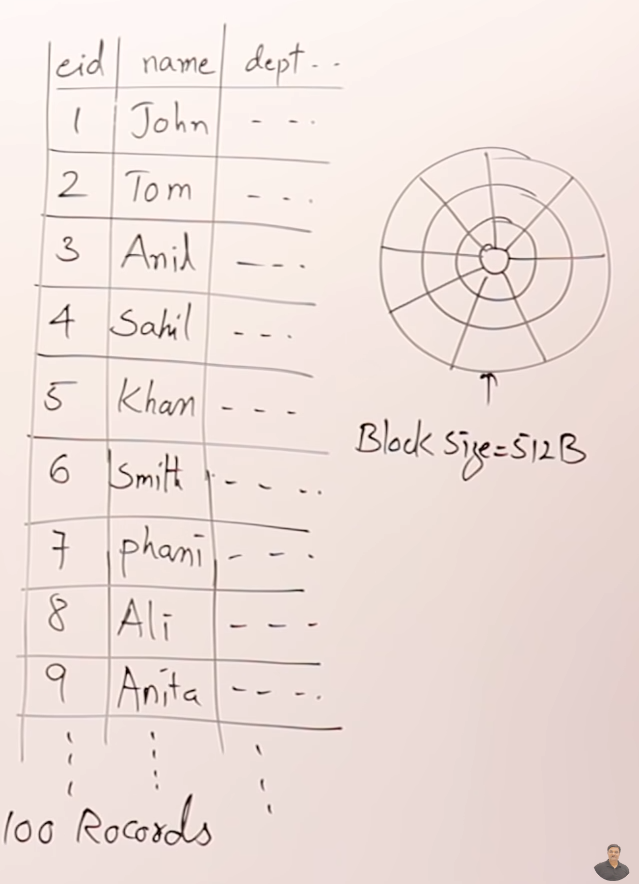 eid name dept - -
1 John - - -
2 Tom - - -
3 Anil - - -
4 Sahil - - -
5 Khan - - -
6 Smith - - - -
7 phani - - -
8 Ali - - -
9 Anita - - - -
100 Rocords
Block Size=512B